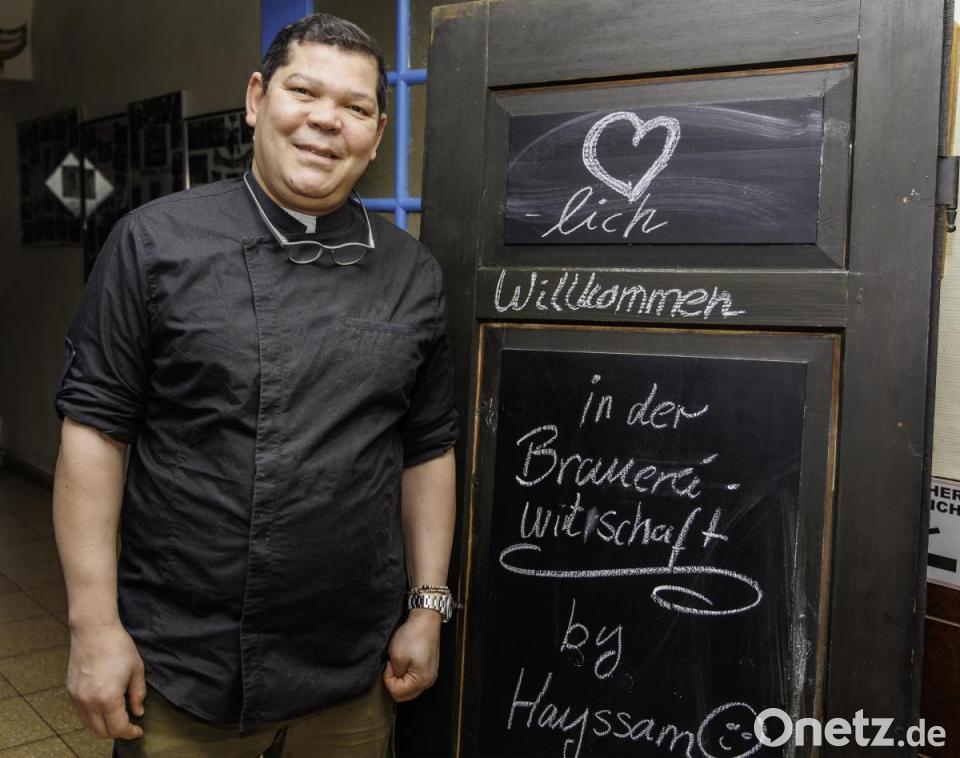 lich
Willkommen
in der
Brauerei-
wirtschaft
by
Hayssam
HER
ICH
Onetz.de